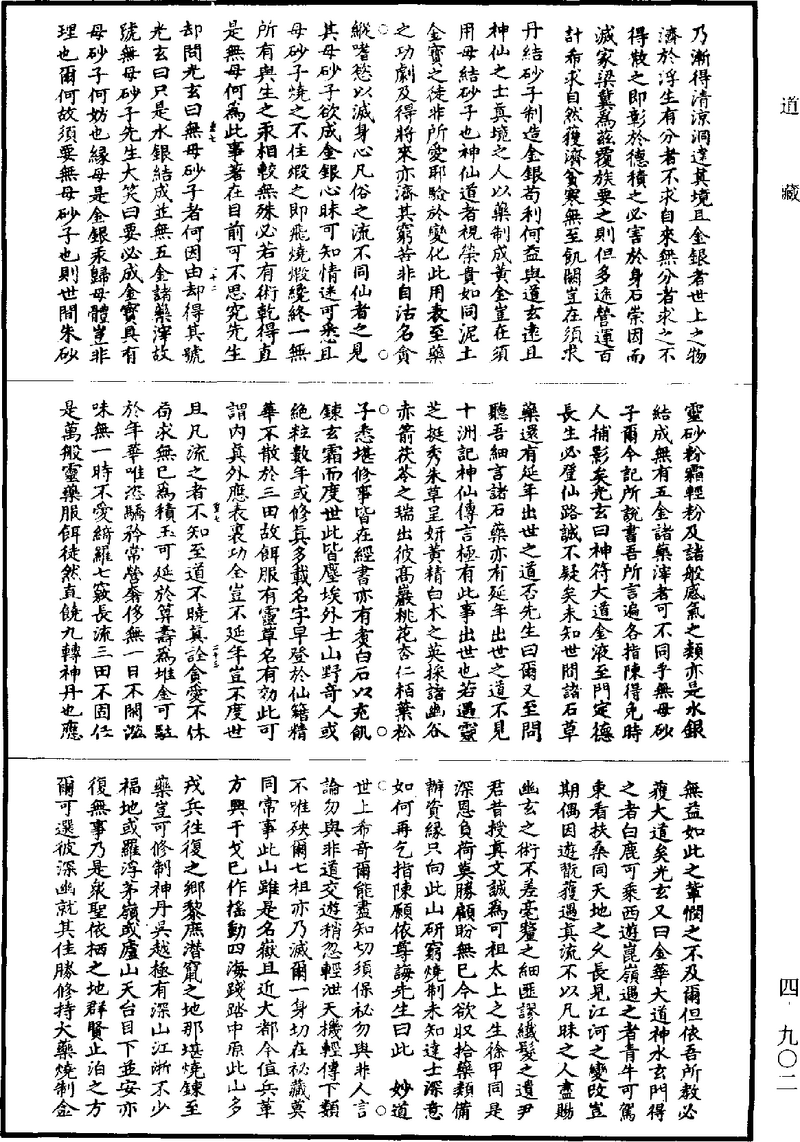 道藏
乃漸得清涼洞達其境且金銀者世上之物
濟於浮生有分者不求自來無分者求之不
得散之即彰於德積之必害於身石崇因而
滅家梁冀為茲覆族要之則但多進營運百
計希求自然獲濟貧窶無至飢闕豈在須求
丹結砂子制造金銀苟利何益與道玄遠且
神仙之士真境之人以藥制成黃金豈在須
用母結砂子也神仙道者視榮貴如同泥土
金寶之徒非所愛耶驗於變化此用表至藥
之功劇及得將來亦濟其窮苦非自沽名貪
縱嗜慾以滅身心凡俗之流不同仙者之見
其母砂子欲成金銀心昧可知情迷可悉且
母砂子燒之不住煅之即飛燒煅纔終一無
所有與生之汞相較無殊必若有術乾得直
是無母何為此事著在目前可不思究先生
却問光玄曰無母砂子者何因由却得其號
光玄曰只是水銀結成並無五金諸藥滓故
號無母砂子先生大笑曰要必成金寶具有
母砂子何妨也緣母是金銀汞歸母體豈非
理也爾何故須要無母砂子也則世間朱砂
靈砂粉霜輕粉及諸般感氣之類亦是水銀
結成無有五金諸藥滓者可不同乎無母砂
子爾今記所說書吾所言遍各指陳得免時
人捕影矣光玄曰神符大道金液至門定德
長生必登仙路誠不疑矣未知世間諸石草
藥還有延年出世之道否先生曰爾又至問
聽吾細言諸石藥亦有延年出世之道不見
十洲記神仙傳言極有此事出世也若遇靈
芝挺秀朱草呈妍黃精白朮之英採諸幽谷
赤箭茯苓之瑞出彼高巖桃花杏仁栢葉松
子悉堪修事皆在經書亦有煮白石以充飢
鍊玄霜而度世此皆塵埃外士山野奇人或
絕粒數年或修真多載名字早登於仙籍精
華不散於三田故餌服有靈草名有効此可
謂內真外應表裏功全豈不延年豈不度世
且凡流之者不知至道不曉真詮貪愛不休
苟求無已為積玉可延於算壽為堆金可駐
於年華唯恣驕矜常營奢侈無一日不閑滋
味無一時不愛綺羅七竅長流三田不固任
是萬般靈藥服餌徒然直饒九轉神丹也應
無益如此之輩憫之不及爾但依吾所教必
獲大道矣光玄又曰金華大道神水玄門得
之者白鹿可乘西遊崑嶺遇之者青牛可駕
東看扶桑同天地之久長見江河之變改豈
期偶因遊翫獲遇真流不以凡昧之人盡賜
幽玄之術不差毫釐之細匪謬纖髮之遺尹
君昔授真文誠為可祖太上之生徐甲同是
深恩負荷莫勝顧盼無已今欲収拾藥類備
辦資緣只向此山研窮燒制未知達士深意
如何再乞指陳願依尊誨先生曰此　妙道
世上希奇爾能盡知切須保祕勿與非人言
論勿與非道交遊稍忽輕泄天機輕傳下類
不唯殃爾七祖亦乃滅爾一身切在祕藏莫
同常事此山雖是名嶽且近大都今值兵革
方興干戈已作搖動四海踐踏中原此山多
戎兵往復之鄉黎庶潛竄之地那堪燒鍊至
藥豈可修制神丹吳越極有深山江浙不少
福地或羅浮茅嶺或廬山天台目下並安亦
復無事乃是衆聖依栖之地群賢止泊之方
爾可選彼深幽就其佳勝修持大藥燒制金
四·九〇二